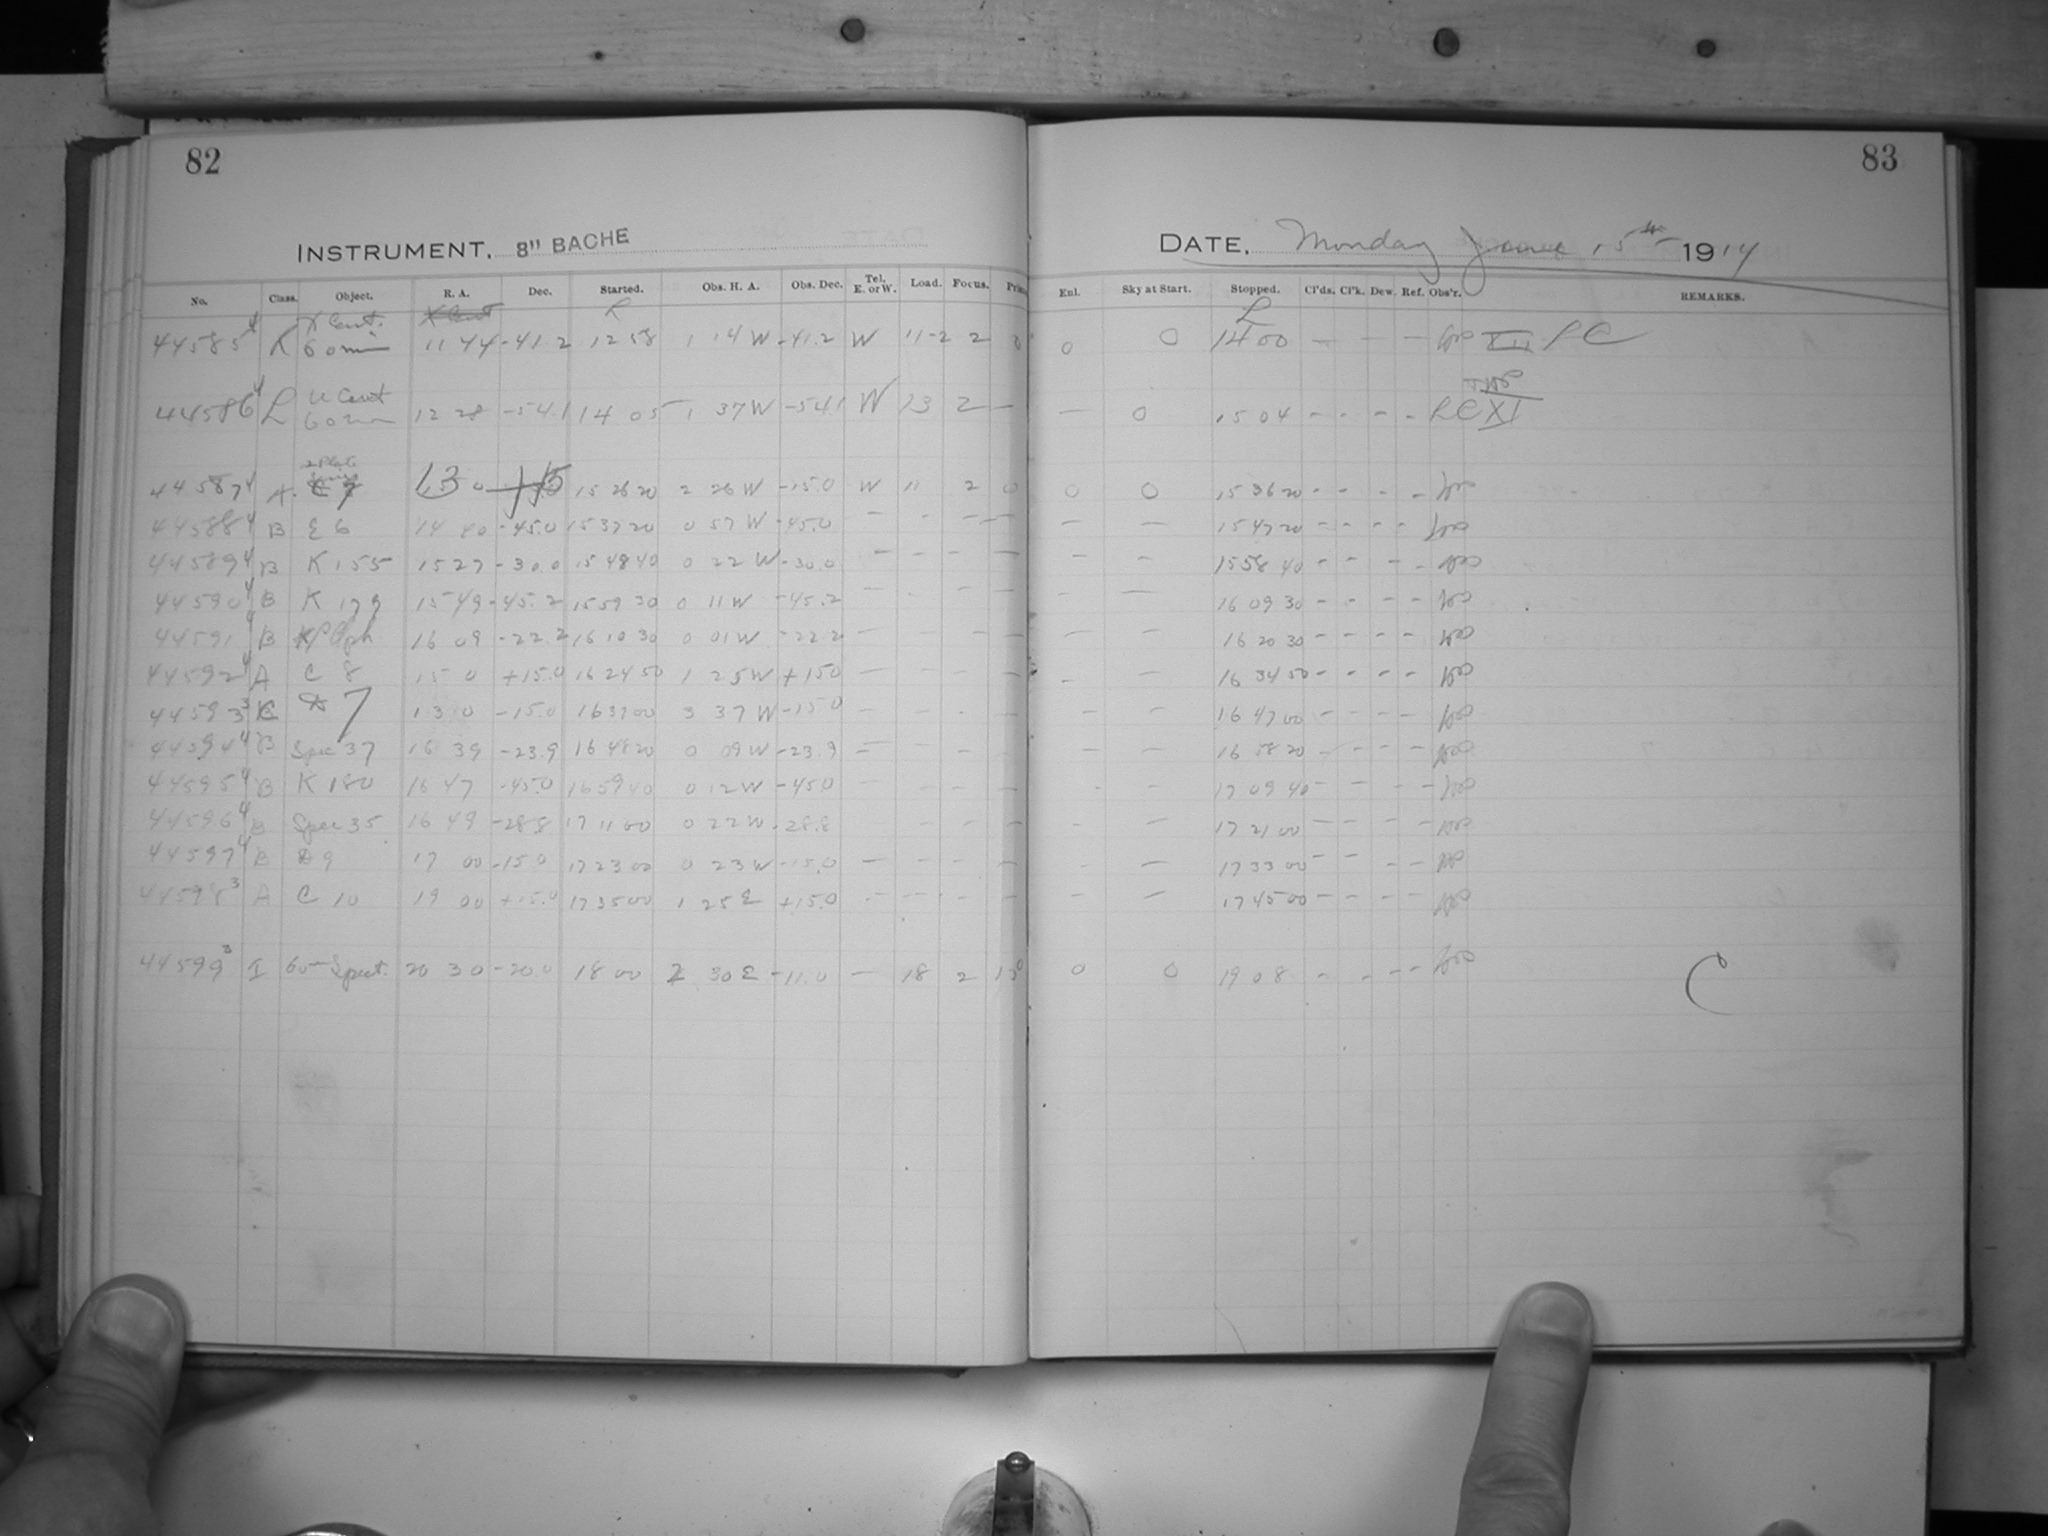 82
83
INSTRUMENT, 8" BACHE
DATE, Monday June 15th 1914
No. Class. Object. R. A. Dec. Started. Obs. H. A. Obs. Dec. Tel. E. or W. Load. Focus. Enl. Sky at Start. Stopped. Cl'ds. Cl'k. Dew. Ref. Obs'r. REMARKS.
X Cent.
44585 4 K 60 min 11 44 -41.2 12 58 1 14 W -41.2 W 11-2 2 0 0 0 14 00 - - - XII
u Cent
44586 4 L 60 min 12 28 -54.1 14 05 1 37 W -54.1 W 13 2 - - 0 15 04 - - - - LC XI
44587 4 A 7 13 0 15 15 26 20 2 26 W -15.0 W 11 2 0 0 0 15 36 20 - - - -
44588 4 B E 6 14 40 -45.0 15 37 20 0 57 W -45.0 - - - - - - 15 47 20 - - - -
44589 4 B K 155 15 27 -30.0 15 48 40 0 22 W -30.0 - - - - - - 15 58 40 - - - -
44590 4 B K 179 15 49 -45.2 15 59 30 0 11 W -45.2 - - - - - - 16 09 30 - - - -
44591 4 B Oph 16 09 -22.2 16 10 30 0 01 W -22.2 - - - - - - 16 20 30 - - - -
44592 4 A C 8 15 0 +15.0 16 24 50 1 25 W +15.0 - - - - - - 16 34 50 - - - -
44593 3 7 13 0 -15.0 16 37 00 3 37 W -15.0 - - - - - - 16 47 00 - - - -
44594 4 B Spec 37 16 39 -23.9 16 48 20 0 09 W -23.9 - - - - - - 16 58 20 - - - -
44595 4 B K 180 16 47 -45.0 16 59 40 0 12 W -45.0 - - - - - - 17 09 40 - - - -
44596 4 B Spec 35 16 49 -28.8 17 11 00 0 22 W -28.8 - - - - - - 17 21 00 - - - -
44597 4 B 9 17 00 -15.0 17 23 00 0 23 W -15.0 - - - - - - 17 33 00 - - - -
44598 3 A C 10 19 00 +15.0 17 35 00 1 25 E +15.0 - - - - - - 17 45 00 - - - -
44599 3 I 60m Spect. 20 30 -20.0 18 00 2 30 E -11.0 - 18 2 0 0 19 08 - - - - C